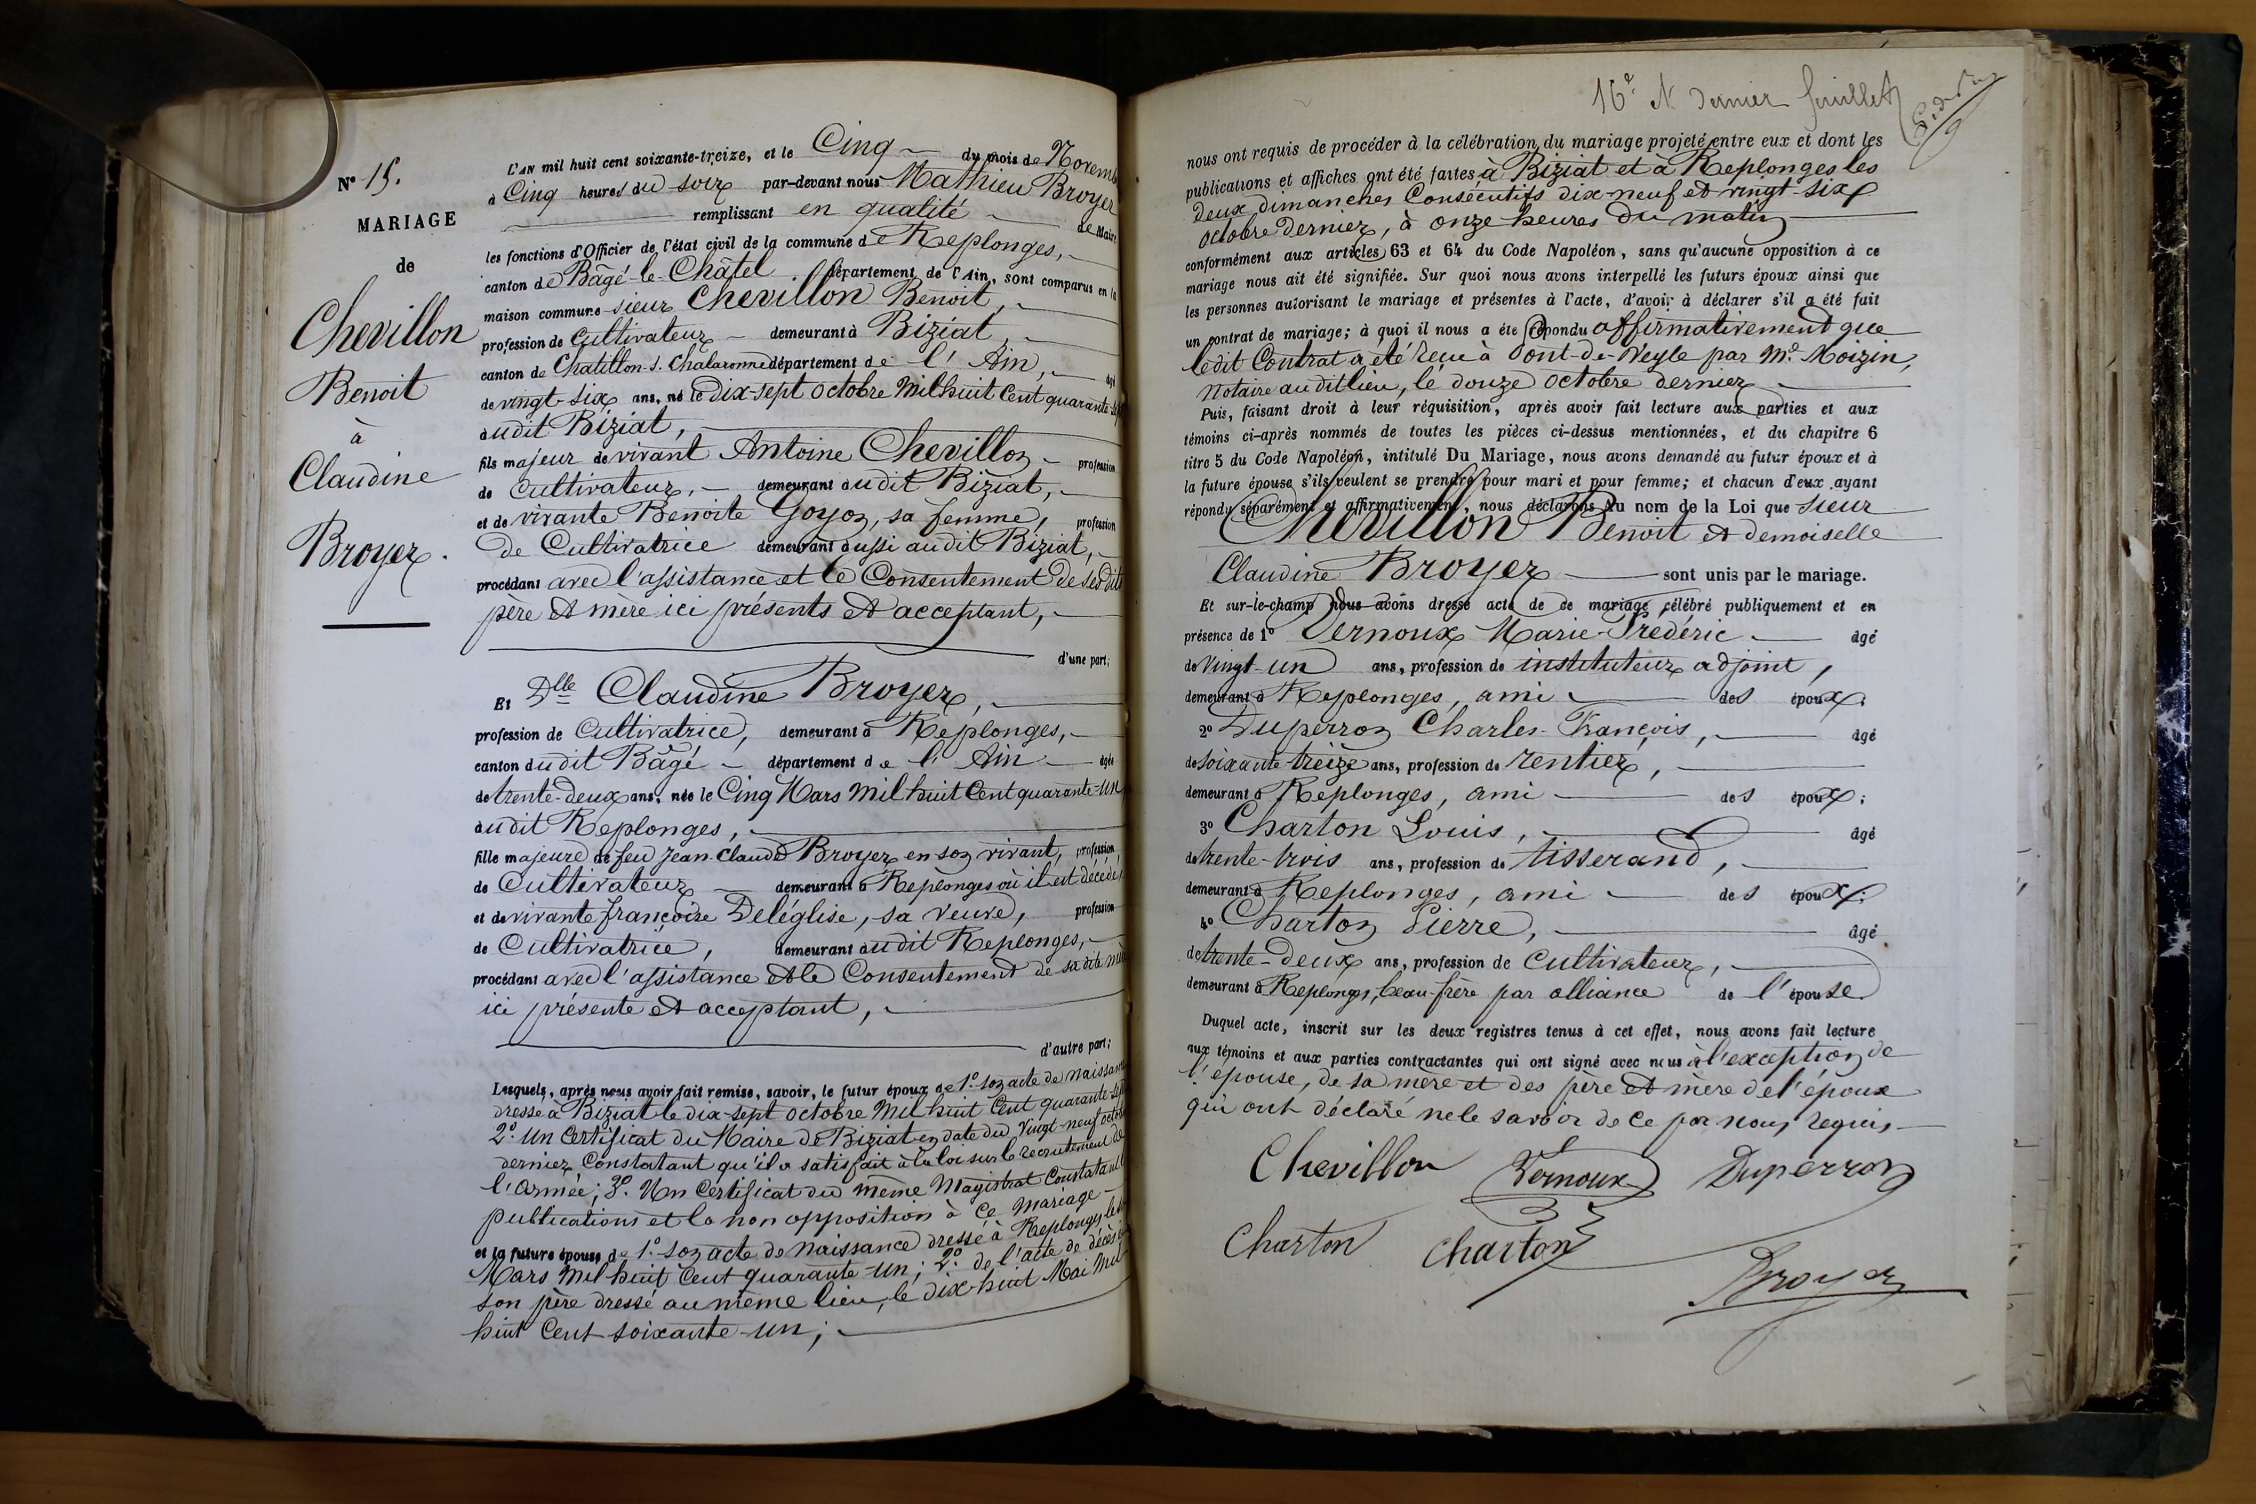 N° 15.
MARIAGE
de
Chevillon
Benoit
à
Claudine
Broyer.
L'AN mil huit cent soixante-treize, et le Cinq du mois de Novemb
à Cinq heures du soir par-devant nous Mathieu Broyer
remplissant en qualité de Maire
les fonctions d'Officier de l'état civil de la commune de Replonges,
canton de Bâgé-le-Châtel. département de l'Ain, sont comparus en la
maison commune sieur Chevillon Benoit,
profession de Cultivateur demeurant à Biziat,
canton de Chatillon-s.-Chalaronne département de l'Ain, âgé
de vingt-six ans, né le Dix-sept octobre Mil huit Cent quarante-sep
audit Biziat,
fils majeur de vivant Antoine Chevillon profession
de Cultivateur, demeurant audit Biziat,
et de vivante Benoite Goyon, sa femme, profession
de Cultivatrice demeurant aussi audit Biziat,
procédant avec l'assistance et le Consentement de ses dits
père et mère ici présents et acceptant,
d'une part;
Et Dlle Claudine Broyer,
profession de Cultivatrice, demeurant à Replonges,
canton dudit Bâgé département de l'Ain âgée
de trente-deux ans, née le Cinq Mars Mil huit Cent quarante-un
audit Replonges,
fille majeure de feu Jean-Claude Broyer en son vivant, profession
de Cultivateur demeurant à Replonges où il est décédé,
et de vivante françoise Deléglise, sa veuve, profession
de Cultivatrice, demeurant audit Replonges,
procédant avec l'assistance et le Consentement de sa dite mère
ici présente et acceptant,
d'autre part;
Lesquels, après nous avoir fait remise, savoir, le futur époux de 1°. son acte de naissance
dressé à Biziat le dix-sept octobre Mil huit Cent quarante-sept
2°. Un Certificat du Maire de Biziat en date du vingt-neuf octobre
dernier, Constatant qu'il a satisfait à la loi sur le recrutement de
l'armée; 3°. Un Certificat du même Magistrat Constatant l
publications et la non opposition à Ce Mariage
et la future épouse de 1°. son acte de Naissance dressé à Replonges le
Mars Mil huit Cent quarante-un; 2°. de l'acte de décès
son père dressé au même lieu, le dix-huit Mai Mil
huit Cent soixante-un;
16e et dernier feuillet
nous ont requis de procéder à la célébration du mariage projeté entre eux et dont les
publications et affiches ont été faites à Biziat et à Replonges les
deux dimanches Consécutifs dix-neuf et vingt-six
octobre dernier, à onze heures du matin
conformément aux articles 63 et 64 du Code Napoléon, sans qu'aucune opposition à ce
mariage nous ait été signifiée. Sur quoi nous avons interpellé les futurs époux ainsi que
les personnes autorisant le mariage et présentes à l'acte, d'avoir à déclarer s'il a été fait
un contrat de mariage; à quoi il nous a été répondu affirmativement que
ledit Contrat a été reçu à Pont-de-Veyle par Me. Moizin,
Notaire audit lieu, le douze octobre dernier
Puis, faisant droit à leur réquisition, après avoir fait lecture aux parties et aux
témoins ci-après nommés de toutes les pièces ci-dessus mentionnées, et du chapitre 6
titre 5 du Code Napoléon, intitulé Du Mariage, nous avons demandé au futur époux et à
la future épouse s'ils veulent se prendre pour mari et pour femme; et chacun d'eux ayant
répondu séparément et affirmativement, nous déclarons au nom de la Loi que sieur
Chevillon Benoit et demoiselle
Claudine Broyer sont unis par le mariage.
Et sur-le-champ nous avons dressé acte de ce mariage célébré publiquement et en
présence de 1° Vernoux Marie-Frédéric âgé
de vingt-un ans, profession de instituteur adjoint,
demeurant à Replonges, ami des époux;
2° Duperron Charles-François, âgé
de soixante-treize ans, profession de rentier,
demeurant à Replonges, ami des époux;
3° Charton Louis, âgé
de trente-trois ans, profession de tisserand,
demeurant à Replonges, ami des époux;
4° Charton Pierre, âgé
de trente-deux ans, profession de Cultivateur,
demeurant à Replonges, beau-frère par alliance de l'épouse.
Duquel acte, inscrit sur les deux registres tenus à cet effet, nous avons fait lecture
aux témoins et aux parties contractantes qui ont signé avec nous à l'exception de
l'épouse, de sa mère et des père et mère de l'époux
qui ont déclaré ne le savoir de ce par nous requis.
Chevillon Vernoux Duperron
Charton Charton
Broyer